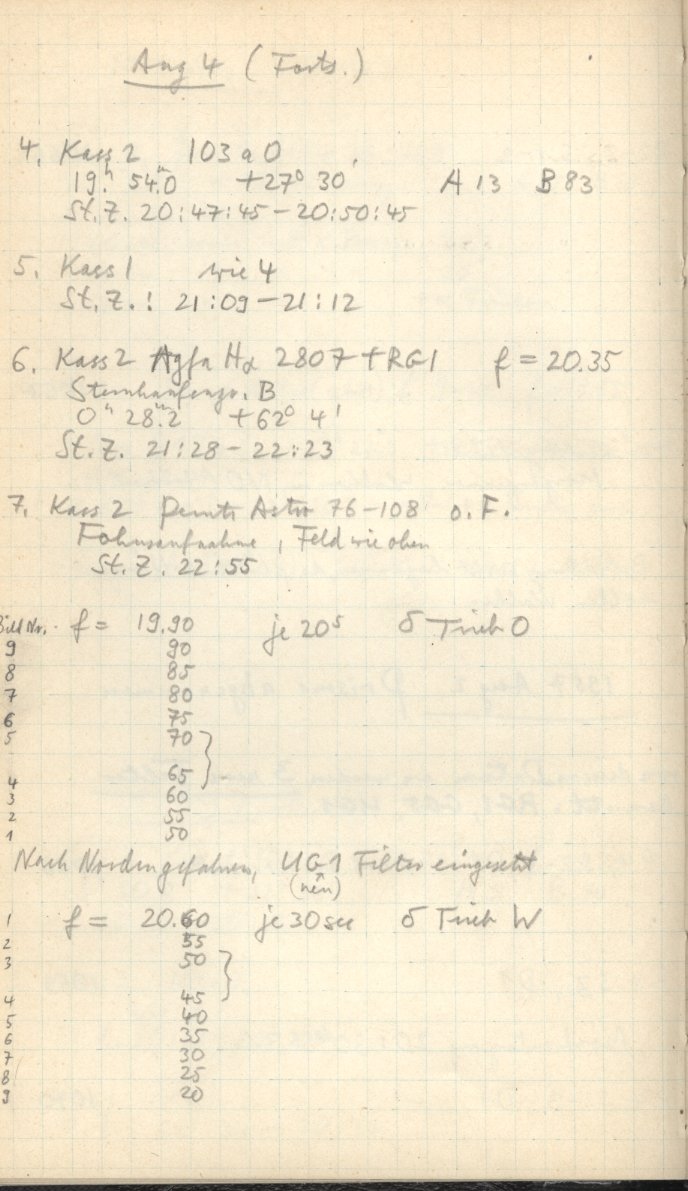 Aug 4 (Forts.)
4. Kass 2 103 a O
19h 54m.0 +27° 30' A 13 B 83
St.Z. 20:47:45 – 20:50:45
5. Kass 1 wie 4
St.Z.: 21:09 – 21:12
6. Kass 2 Agfa Hα 2807 + RG1 f = 20.35
B
0h 28m.2 +62° 4'
St.Z. 21:28 – 22:23
7. Kass 2 Astro 76–108 o.F.
Fokusaufnahme, Feld wie oben
St.Z. 22:55
Bild Nr. f = 19.90 je 20s δ Trieb O
9 90
8 85
7 80
6 75
5 70
4 65
3 60
2 55
1 50
Nach Norden gefahren, UG1 Filter eingesetzt
(neu)
1 f = 20.60 je 30 sec δ Trieb W
2 55
3 50
4 45
5 40
6 35
7 30
8 25
9 20